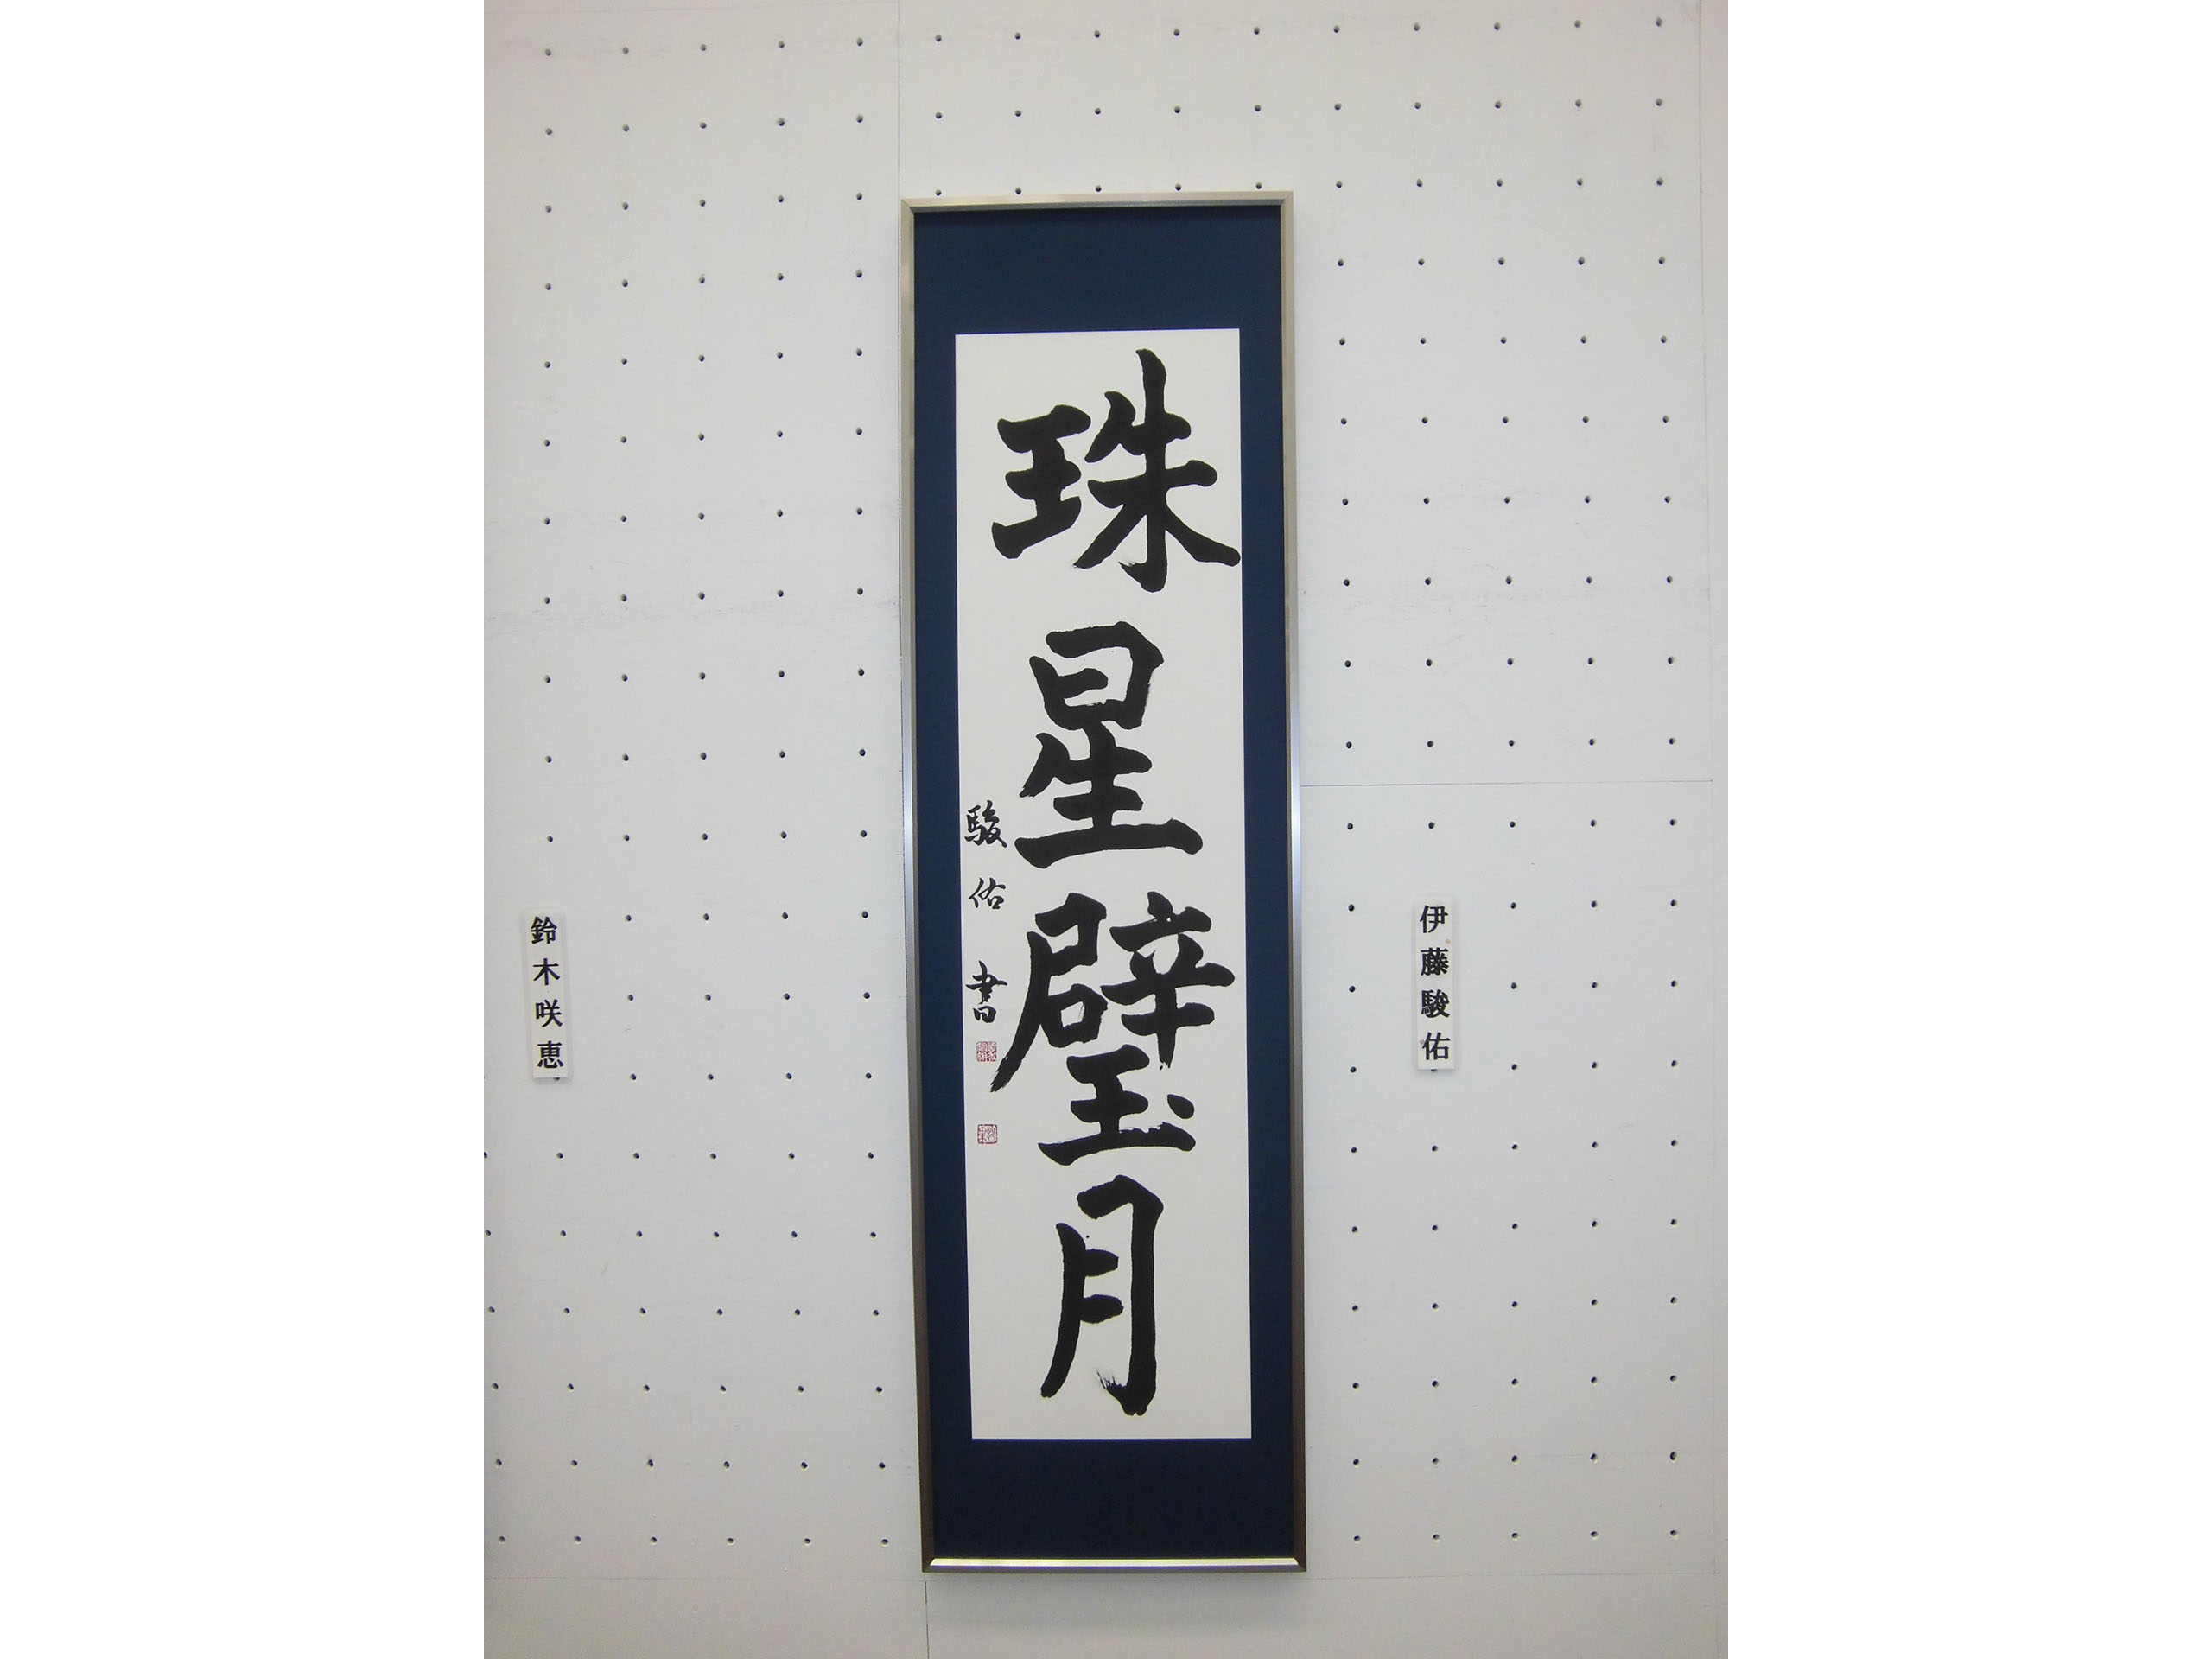 珠星璧月
駿佑書
伊藤駿佑
鈴木咲恵